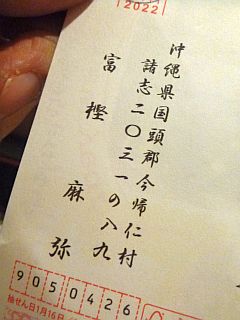 2022
沖縄県国頭郡今帰仁村
諸志二〇三一の八九
富樫麻弥
9050426
抽せん日1月16日